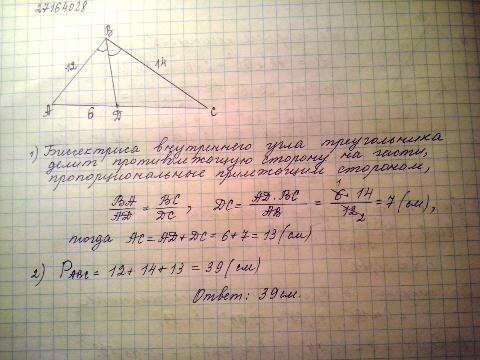 27164028
B
12
14
A
6
D
C
1) Биссектриса внутреннего угла треугольника
делит противолежащую сторону на части,
пропорциональные прилежащим сторонам,
BA/AD = BC/DC, DC = AD·BC/AB = 6·14/12 2 = 7 (см),
тогда AC = AD + DC = 6 + 7 = 13 (см)
2) P ABC = 12 + 14 + 13 = 39 (см)
Ответ: 39 см.